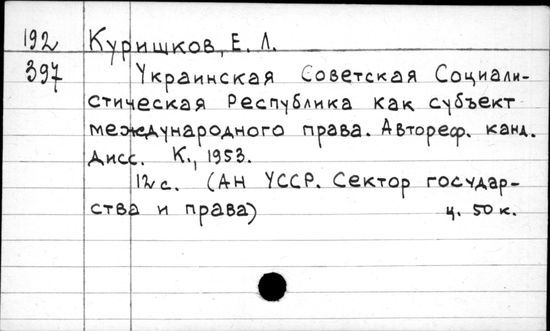 192 Куришков, Е. Л.
397 Украинская Советская Социали-
стическая Республика как субъект
международного права. Автореф. канд.
дисс. К., 1953.
12 с. (АН УССР. Сектор государ-
ства и права)
ц. 50 к.